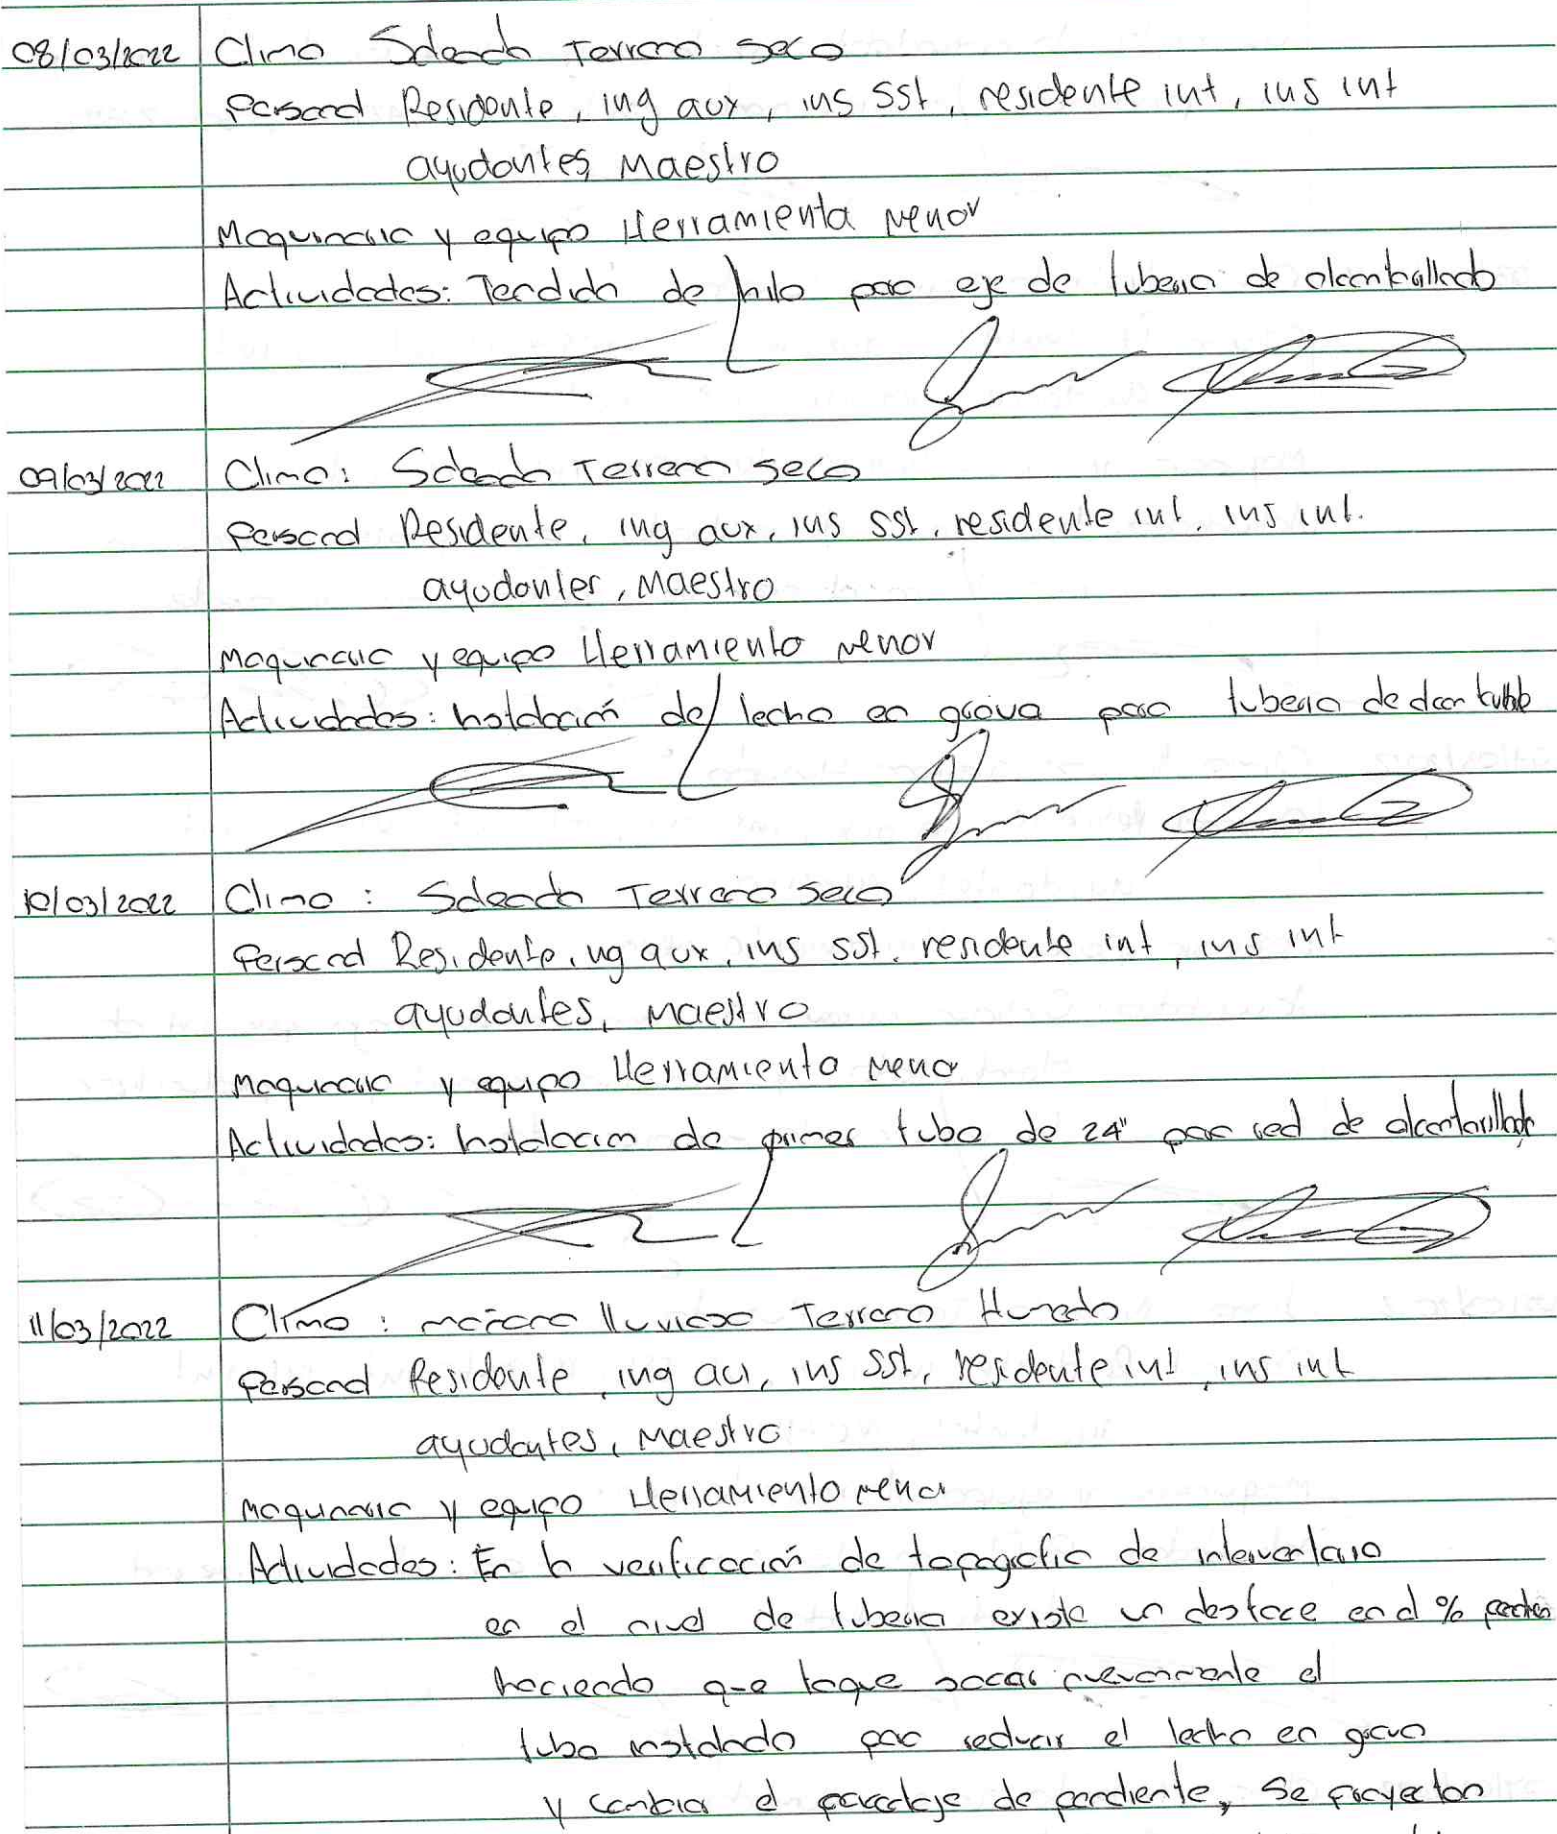 08/03/2022 Clima Soleado Terreno seco
Personal Residente, ing aux, ins sst, residente int, ins int
ayudantes, Maestro
Maquinaria y equipo Herramienta Menor
Actividades: Tendido de hilo para eje de tuberia de alcantarillado
09/03/2022 Clima: Soleado Terreno seco
Personal Residente, ing aux, ins sst, residente int, ins int.
ayudantes, Maestro
Maquinaria y equipo Herramienta Menor
Actividades: Instalación del lecho en grava para tuberia de
10/03/2022 Clima: Soleado Terreno seco
Personal Residente, ing aux, ins sst, residente int, ins int
ayudantes, Maestro
Maquinaria y equipo Herramienta Menor
Actividades: Instalacion de primer tubo de 24" para red de alcantarillado
11/03/2022 Clima: mañana lluviosa Terreno Humedo
Personal Residente, ing aux, ins sst, residente int, ins int
ayudantes, Maestro
Maquinaria y equipo Herramienta Menor
Actividades: En la verificación de topografia de interventoria
en el nivel de tuberia existe un desface en el %
haciendo que toque sacar nuevamente el
tubo instalado para reducir el lecho en grava
y cambiar el porcentaje de pendiente, se proyectan